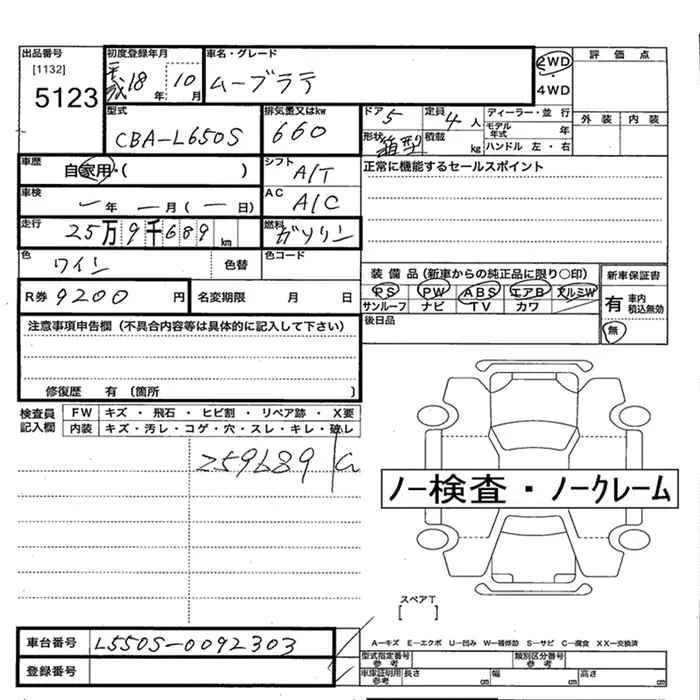 出品番号 初度登録年月 車名・グレード 評価点
[1132] 平成18年 10月 ムーブラテ 2WD
5123 4WD 外装 内装
型式 CBA-L650S 排気量又はkw 660 ドア 5 定員 4人 ディーラー・並行
形状 箱型 積載 kg モデル年式 年
ハンドル 左・右
車歴 自家用・( ) シフト A/T 正常に機能するセールスポイント
車検 ー年 ー月 (ー日) AC A/C
走行 25万9千689km 燃料 ガソリン
色 ワイン 色替 色コード
装備品(新車からの純正品に限り○印) 新車保証書
R券 9200円 名変期限 月 日 PS PW ABS エアB アルミW 有 車内積込無効
サンルーフ ナビ TV カワ
後日品 無
注意事項申告欄(不具合内容等は具体的に記入して下さい)
修復歴 有 〔箇所 〕
検査員記入欄 FW キズ・飛石・ヒビ割・リペア跡・X要
内装 キズ・汚レ・コゲ・穴・スレ・キレ・破レ
259689
ノー検査・ノークレーム
スペアT
[ ]
車台番号 L550S-0092303
登録番号
A―キズ E―エクボ U―凹み W―補修跡 S―サビ C―腐食 XX―交換済
型式指定番号 参考 類別区分番号 参考
車庫証明用 参考 長さ cm 幅 cm 高さ cm